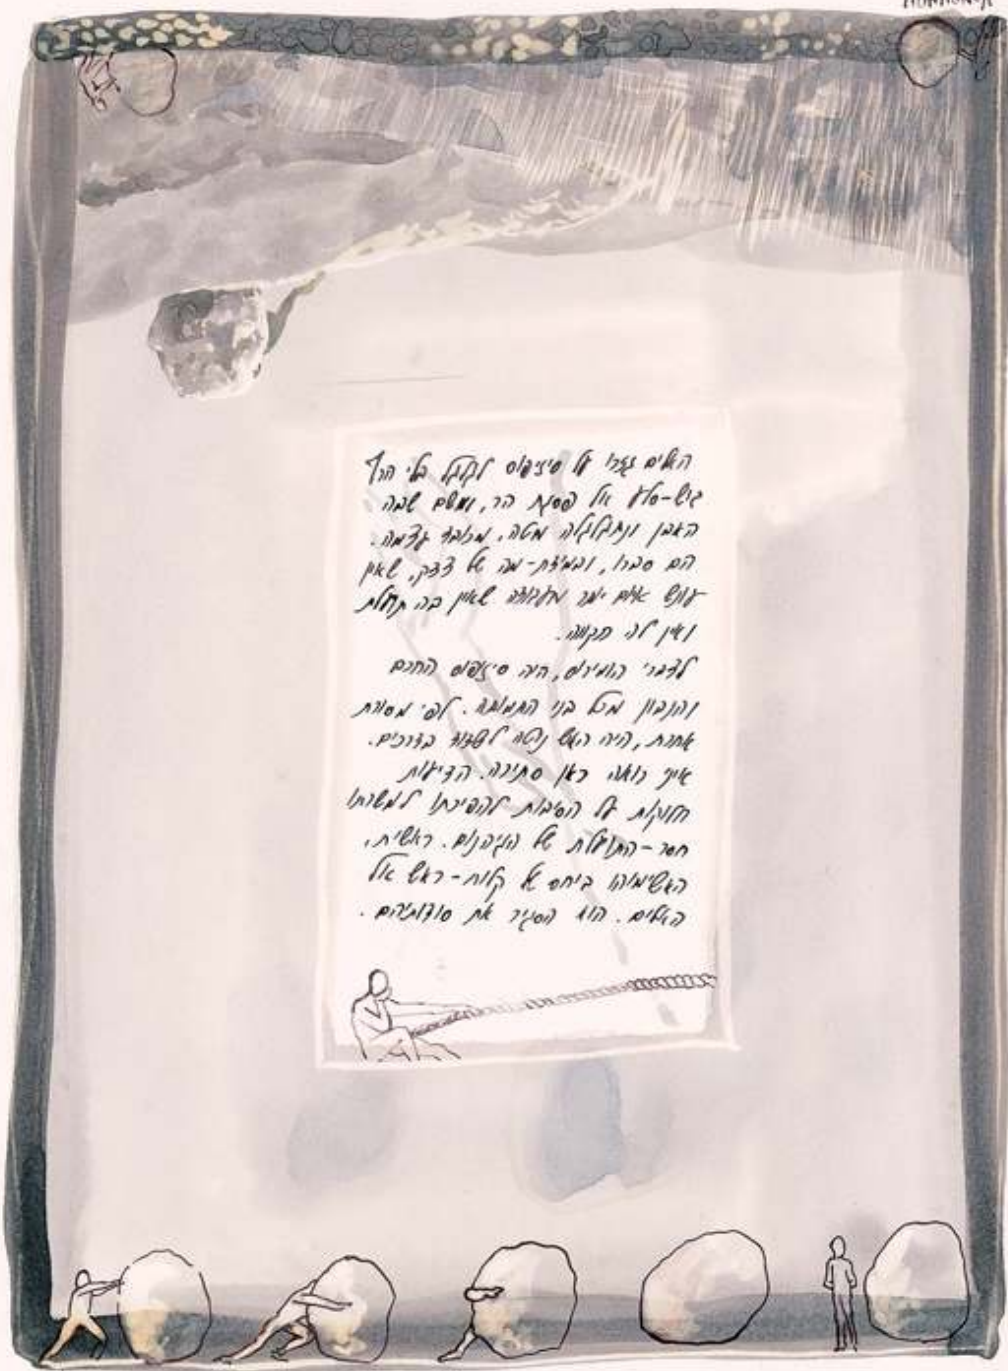 האלים גזרו על סיזיפוס לגלגל בלי הרף
גוש-סלע אל פסגת הר, ומשם שבה
האבן ונתגלגלה מטה, מכובד עצמה.
הם סברו, ובמידת-מה של צדק, שאין
עונש איום יותר מעבודה שאין בה תועלת
ואין לה תקווה.
לדברי הומירוס, היה סיזיפוס החכם
והנבון מכל בני התמותה. לפי מסורת
אחרת, היה האיש נוטה לשדוד בדרכים.
איני רואה כאן סתירה. הדיעות
חלוקות על הסיבות להפיכתו למשרתו
חסר-התועלת של הגיהנום. ראשית,
האשימוהו ביחס של קלות-ראש אל
האלים. הוא הסגיר את סודותיהם.